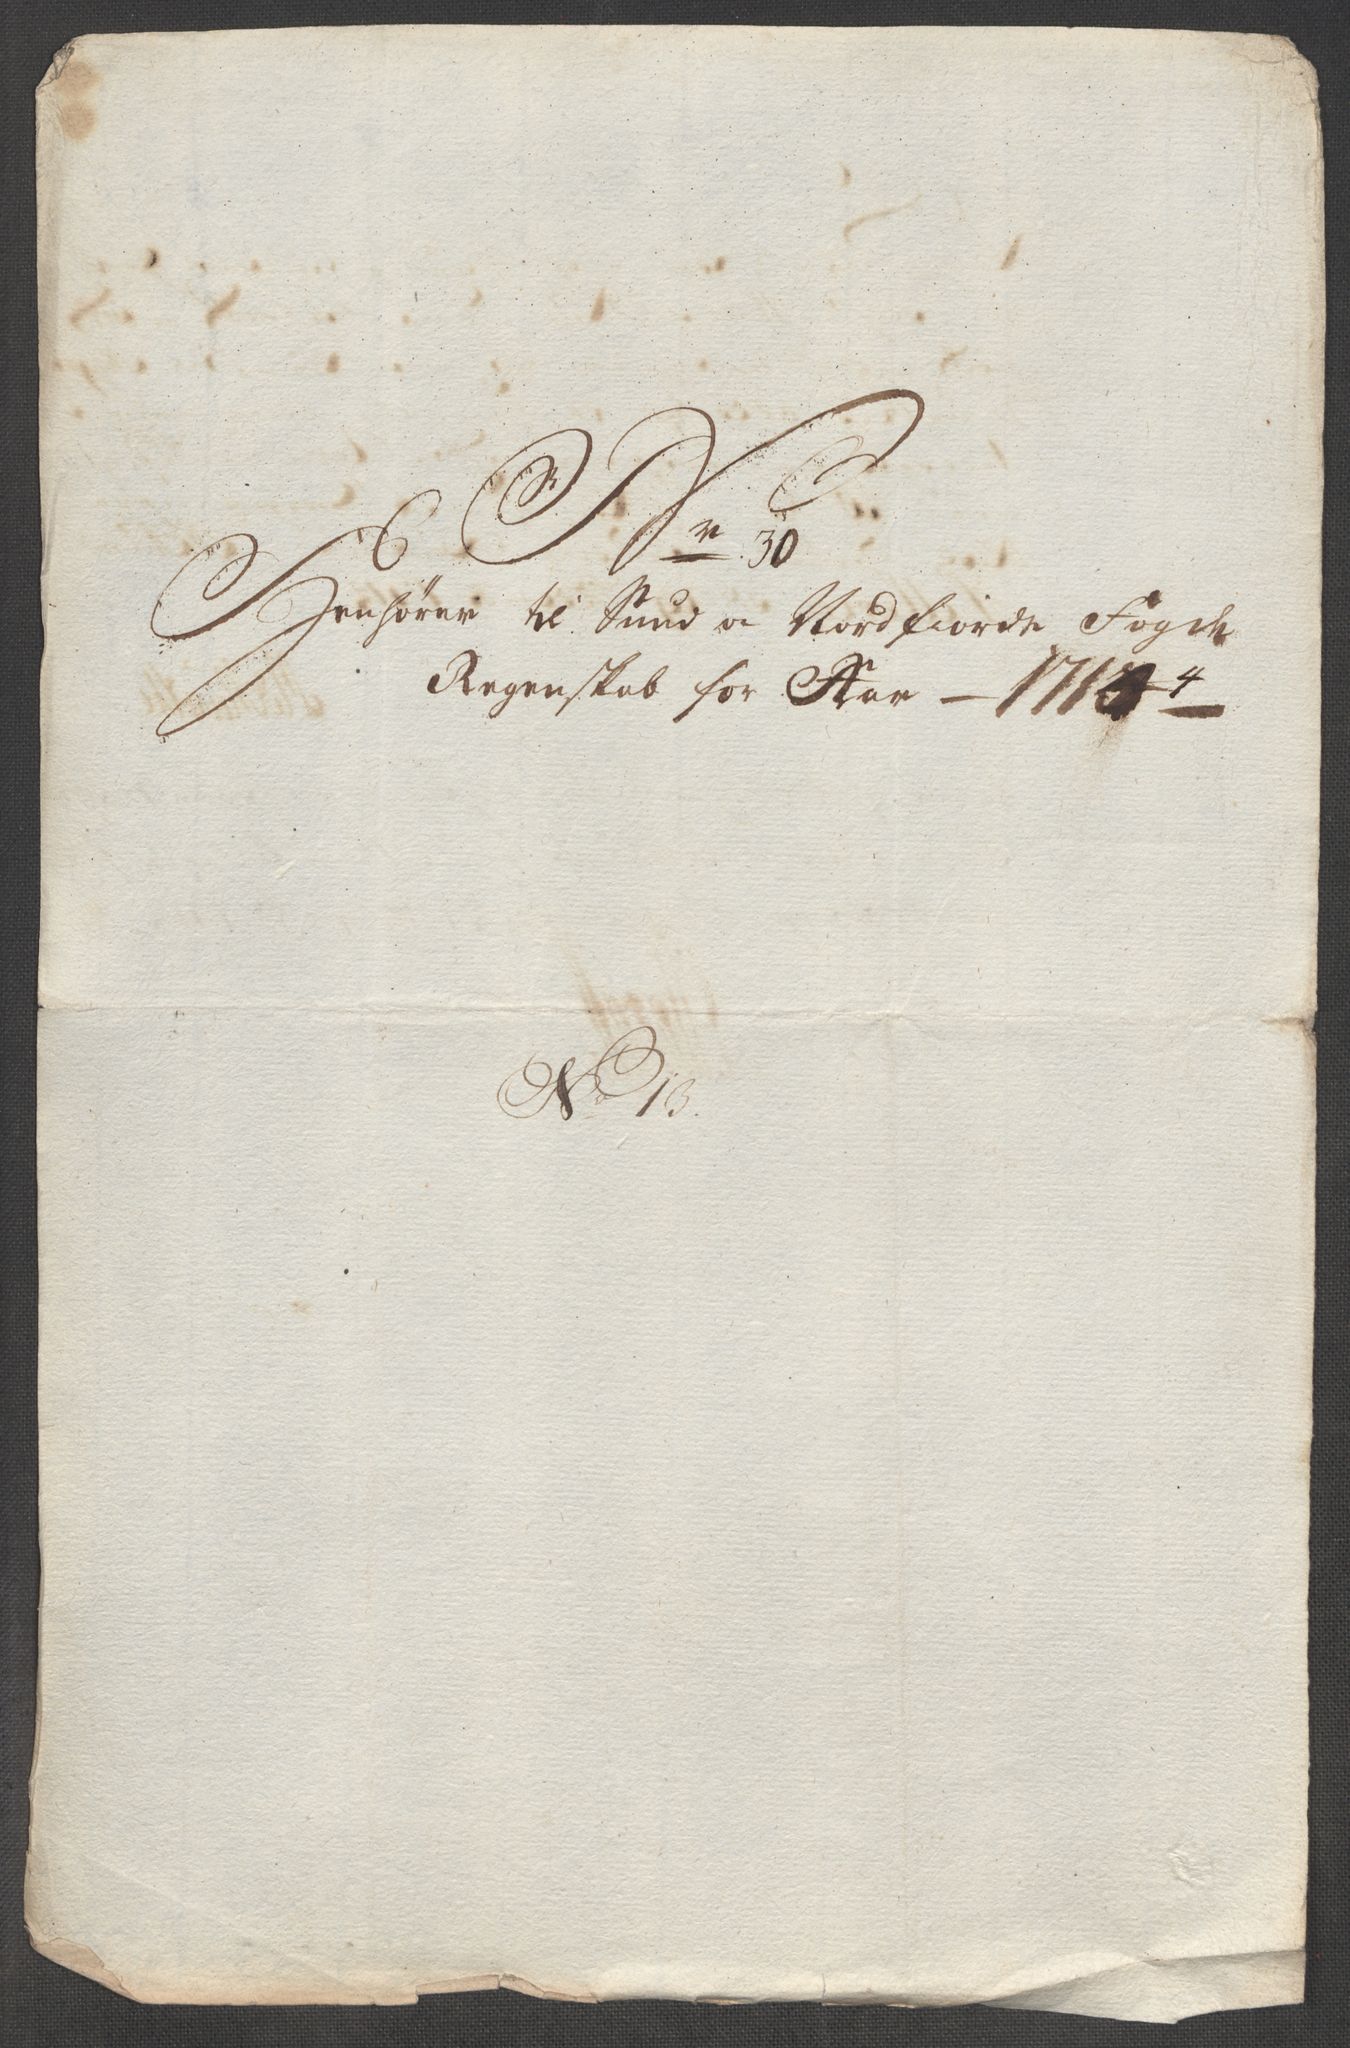 Nr 30
Henhører til Sund o Nordfiorde Fögde
Regenskab for Aar – 1714
No 13.